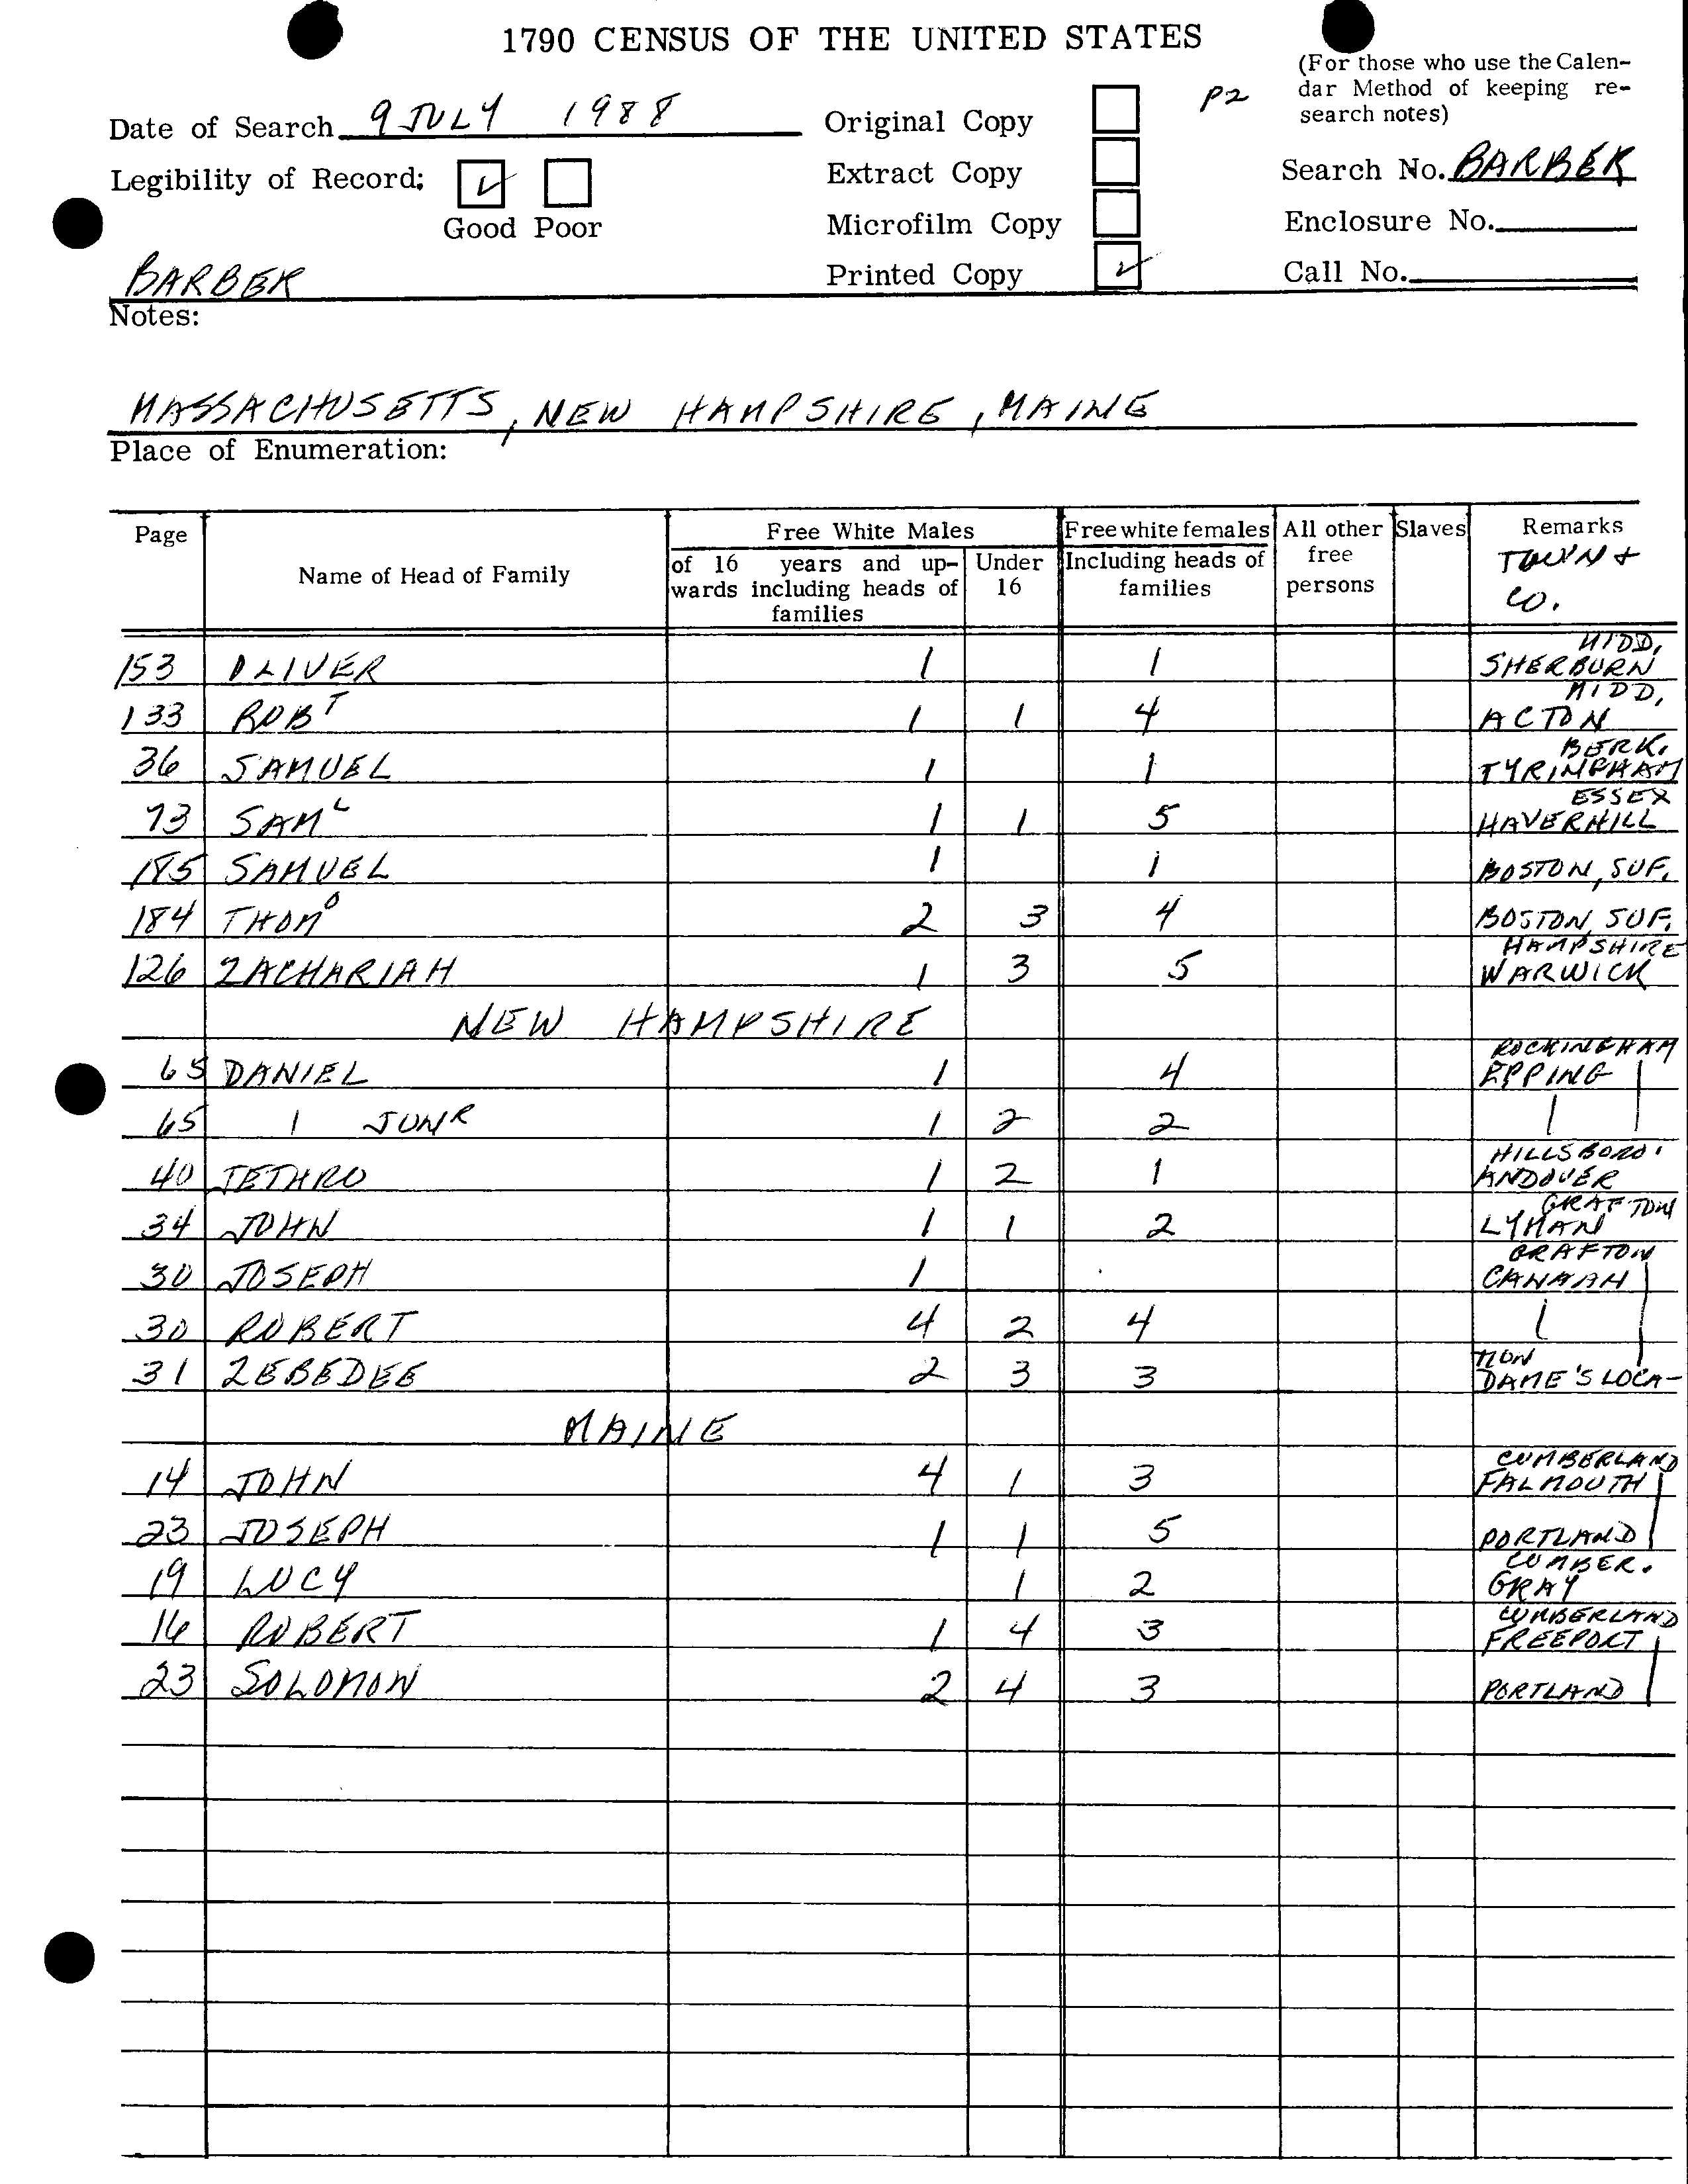 1790 CENSUS OF THE UNITED STATES
(For those who use the Calen-
dar Method of keeping re-
search notes)
P2
Date of Search 9 JULY 1988
Original Copy
Legibility of Record:
Extract Copy
Search No. BARBER
Good Poor
Microfilm Copy
Enclosure No.
BARBER
Printed Copy
Call No.
Notes:
MASSACHUSETTS, NEW HAMPSHIRE, MAINE
Place of Enumeration:
Page
Name of Head of Family
Free White Males
of 16 years and up-
wards including heads of
families
Under
16
Free white females
Including heads of
families
All other
free
persons
Slaves
Remarks
TOWN &
CO.
153 OLIVER 1 1 MIDD, SHERBURN
133 ROBT 1 1 4 MIDD, ACTON
36 SAMUEL 1 1 BERK. TYRINGHAM
73 SAML 1 1 5 ESSEX HAVERHILL
185 SAMUEL 1 1 BOSTON, SUF.
184 THOMO 2 3 4 BOSTON, SUF.
126 ZACHARIAH 1 3 5 HAMPSHIRE WARWICK
NEW HAMPSHIRE
65 DANIEL 1 4 ROCKINGHAM EPPING
65 | JUNR 1 2 2 |
40 JETHRO 1 2 1 HILLSBORO. ANDOVER
34 JOHN 1 1 2 GRAFTON LYMAN
30 JOSEPH 1 GRAFTON CANAAN
30 ROBERT 4 2 4 |
31 ZEBEDEE 2 3 3 TION DAME'S LOCA-
MAINE
14 JOHN 4 1 3 CUMBERLAND FALMOUTH
23 JOSEPH 1 1 5 PORTLAND
19 LUCY 1 2 CUMBER. GRAY
16 ROBERT 1 4 3 CUMBERLAND FREEPORT
23 SOLOMON 2 4 3 PORTLAND